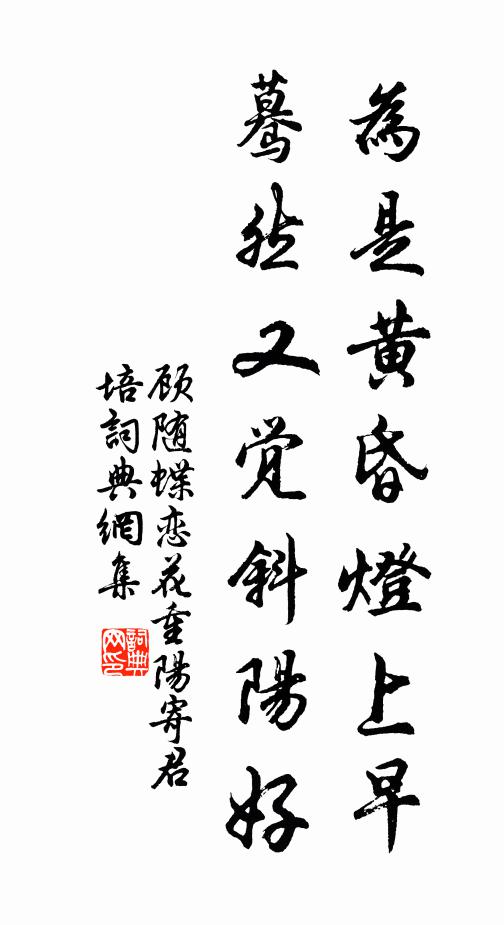 為是黄昏燈上早
蓦然又觉斜陽好
顾随蝶恋花重陽寄君
培詞典網集
詞典
网印